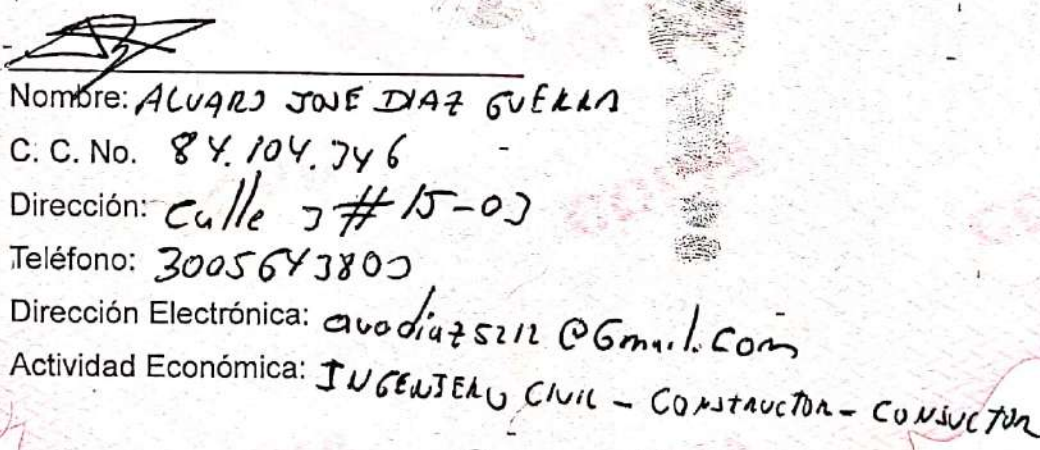 Nombre: ALVARO JOSE DIAZ GUERRA
C. C. No. 84.104.346
Dirección: Calle 3 # 15-03
Teléfono: 3005643803
Dirección Electrónica: avodiaz5212@Gmail.com
Actividad Económica: INGENIERO CIVIL - CONSTRUCTOR - CONSUCTOR